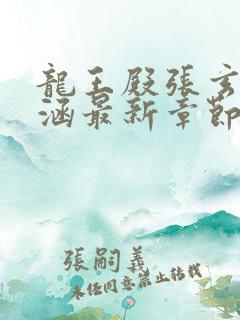 龍王殿張玄
涵最新章節
張嗣義
未經同意禁止轉載